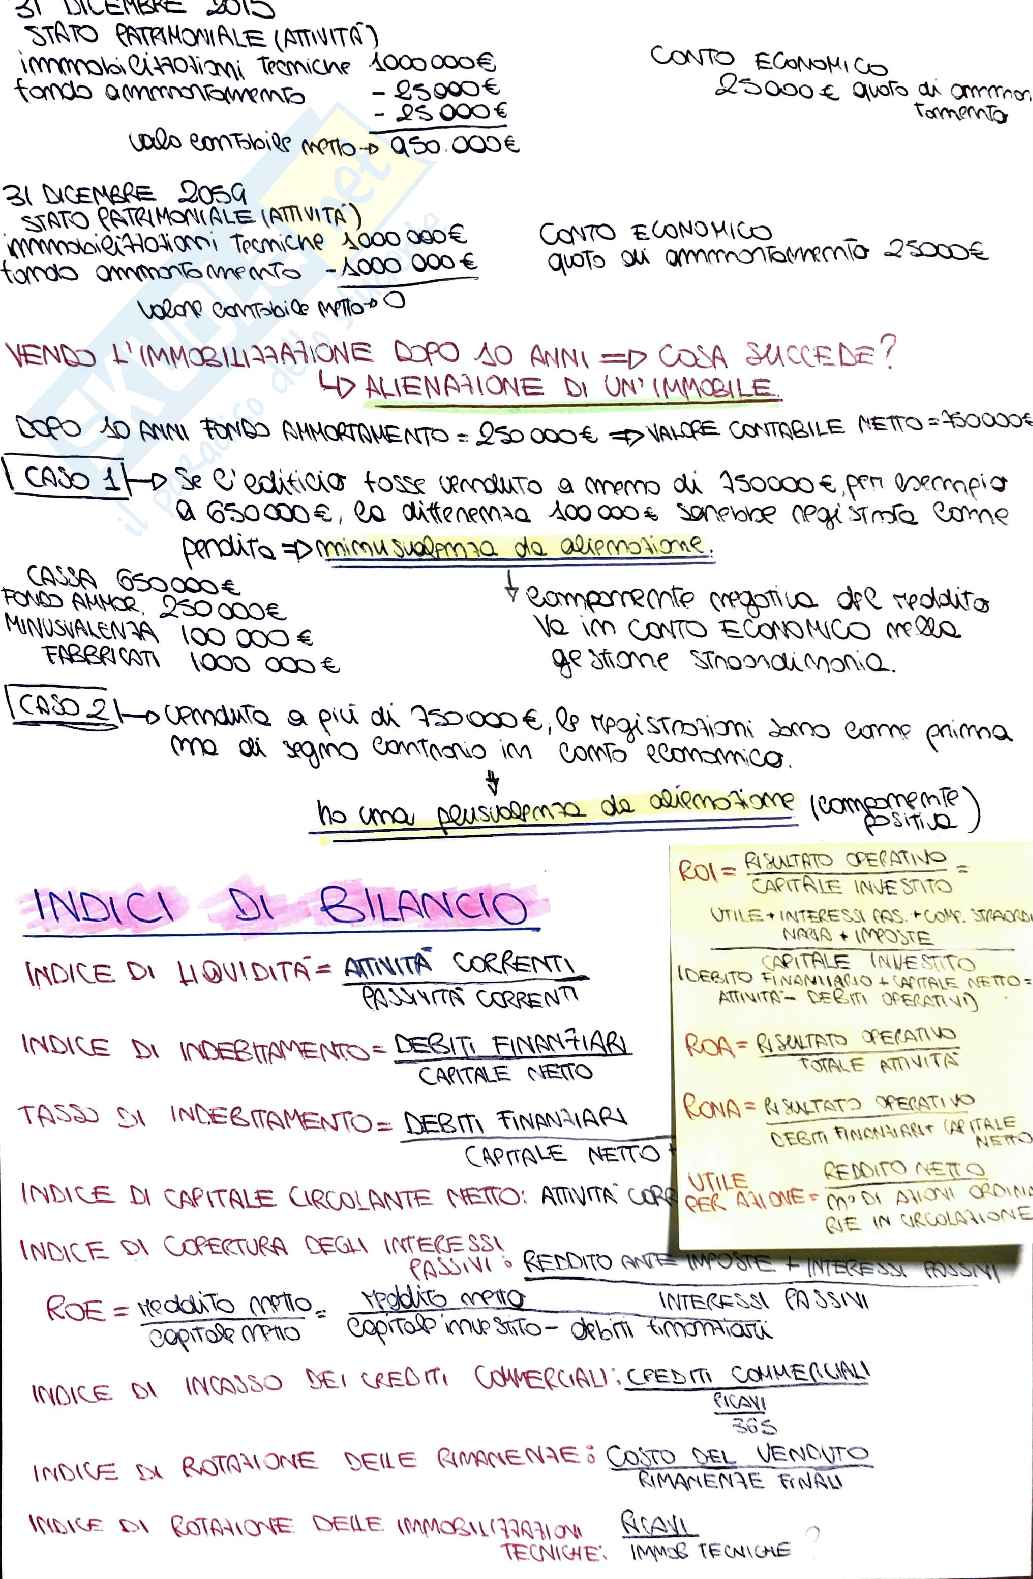 31 DICEMBRE 2015
STATO PATRIMONIALE (ATTIVITÀ)
immobilizzazioni tecniche 1000000€
fondo ammortamento - 25000€
- 25000€
valo contabile netto → 950.000€
CONTO ECONOMICO
25000€ quota di ammor
tamento
31 DICEMBRE 2059
STATO PATRIMONIALE (ATTIVITÀ)
immobilizzazioni tecniche 1000000€
fondo ammortamento - 1000 000€
valore contabile netto → 0
CONTO ECONOMICO
quota di ammortamento 25000€
VENDO L'IMMOBILIZZAZIONE DOPO 10 ANNI => COSA SUCCEDE?
↳ ALIENAZIONE DI UN'IMMOBILE
DOPO 10 ANNI FONDO AMMORTAMENTO = 250 000€ => VALORE CONTABILE NETTO = 750000€
CASO 1 → Se l'edificio fosse venduto a meno di 750000€, per esempio
a 650000€, la differenza 100000€ sarebbe registrata come
perdita => minusvalenza da alienazione.
CASSA 650000€
FONDO AMMOR. 250000€
MINUSVALENZA 100 000€
FABBRICATI 1000 000€
↓ componente negativa del reddito
Va in CONTO ECONOMICO nella
gestione straordinaria.
CASO 2 → venduta a più di 750000€, le registrazioni sono come prima
ma di segno contrario in conto economico.
↓
ho una plusvalenza da alienazione (componente
positiva)
INDICI DI BILANCIO
INDICE DI LIQUIDITÀ = ATTIVITÀ CORRENTI
PASSIVITÀ CORRENTI
INDICE DI INDEBITAMENTO = DEBITI FINANZIARI
CAPITALE NETTO
TASSO DI INDEBITAMENTO = DEBITI FINANZIARI
CAPITALE NETTO +
INDICE DI CAPITALE CIRCOLANTE NETTO: ATTIVITÀ CORR
INDICE DI COPERTURA DEGLI INTERESSI
PASSIVI: REDDITO ANTE IMPOSTE + INTERESSI PASSIVI
INTERESSI PASSIVI
ROE = reddito netto = reddito netto
capitale netto capitale investito - debiti finanziari
INDICE DI INCASSO DEI CREDITI COMMERCIALI: CREDITI COMMERCIALI
RICAVI
365
INDICE DI ROTAZIONE DELLE RIMANENZE: COSTO DEL VENDUTO
RIMANENZE FINALI
INDICE DI ROTAZIONE DELLE IMMOBILIZZAZIONI
TECNICHE: RICAVI
IMMOB TECNICHE ?
ROI = RISULTATO OPERATIVO =
CAPITALE INVESTITO
UTILE + INTERESSI PAS. + COMP. STRAORDI
NARIA + IMPOSTE
CAPITALE INVESTITO
(DEBITO FINANZIARIO + CAPITALE NETTO =
ATTIVITÀ - DEBITI OPERATIVI)
ROA = RISULTATO OPERATIVO
TOTALE ATTIVITÀ
RONA = RISULTATO OPERATIVO
DEBITI FINANZIARI + CAPITALE
NETTO
UTILE
PER AZIONE = REDDITO NETTO
N° DI AZIONI ORDINA
RIE IN CIRCOLAZIONE